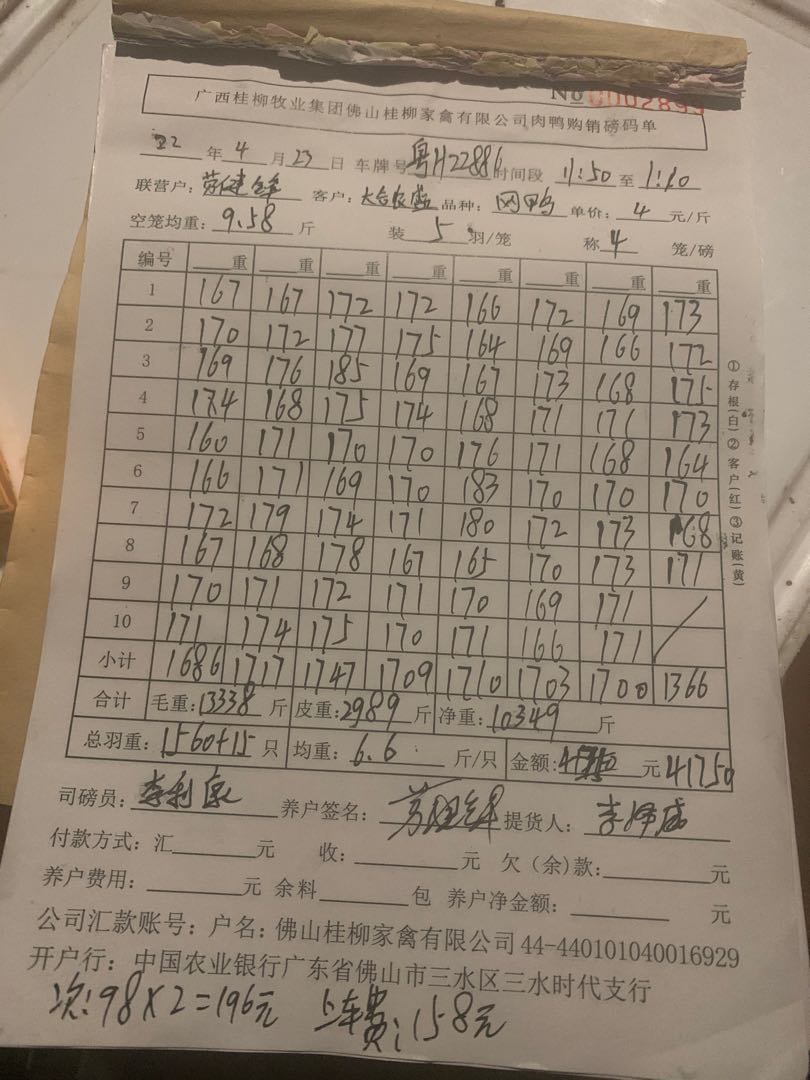 No 0002895
广西桂柳牧业集团佛山桂柳家禽有限公司肉鸭购销磅码单
22 年 4 月 23 日 车牌号 粤H22886 时间段 11:50 至 1:10
联营户: 客户: 品种: 网鸭 单价: 4 元/斤
空笼均重: 9.58 斤 装 5 羽/笼 称 4 笼/磅
编号 重 重 重 重 重 重 重 重
1 167 167 172 172 166 172 169 173
2 170 172 177 175 164 169 166 172
3 169 176 185 169 167 173 168 175
4 174 168 175 174 168 171 171 173
5 160 171 170 170 176 171 168 164
6 166 171 169 170 183 170 170 170
7 172 179 174 171 180 172 173 168
8 167 168 178 167 165 170 173 171
9 170 171 172 171 170 169 171 /
10 171 174 175 170 171 166 171
小计 1686 1717 1747 1709 1710 1703 1700 1366
合计 毛重: 13338 斤 皮重: 2989 斤 净重: 10349 斤
总羽重: 1560+15 只 均重: 6.6 斤/只 金额: 元 41750
司磅员: 养户签名: 提货人:
付款方式: 汇 元 收: 元 欠(余)款: 元
养户费用: 元 余料 包 养户净金额: 元
公司汇款账号: 户名: 佛山桂柳家禽有限公司 44-440101040016929
开户行: 中国农业银行广东省佛山市三水区三水时代支行
次: 98×2=196元 上车费: 158元
①存根(白)②客户(红)③记账(黄)